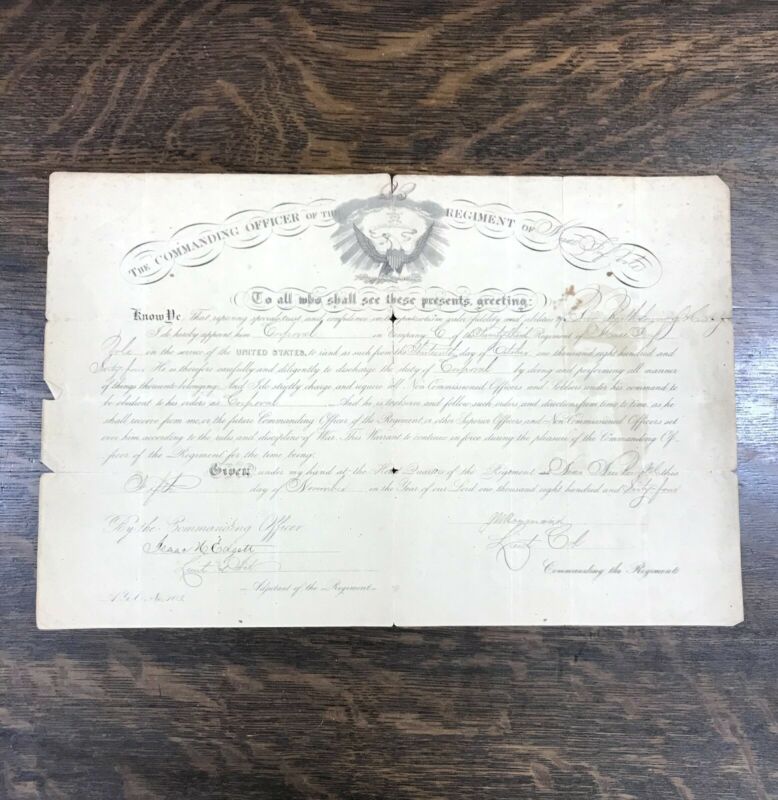 THE COMMANDING OFFICER OF THE REGIMENT OF
To all who shall see these presents, greeting:
Know Ye, That reposing special trust and confidence in the patriotism, valor, fidelity and abilities of
I do hereby appoint him Corporal in Company C of the Regiment of
in the service of the UNITED STATES, to rank as such from the day of October one thousand eight hundred and
He is therefore carefully and diligently to discharge the duty of Corporal by doing and performing all manner
of things thereunto belonging. And I do strictly charge and require all Non-Commissioned Officers and Soldiers under his command to
be obedient to his orders as Corporal And he is to observe and follow such orders and directions from time to time, as he
shall receive from me, or the future Commanding Officer of the Regiment, or other Superior Officers and Non-Commissioned Officers set
over him, according to the rules and discipline of War. This Warrant to continue in force during the pleasure of the Commanding Of-
ficer of the Regiment for the time being.
Given under my hand at the Head Quarters of the Regiment at Near
day of November in the Year of our Lord one thousand eight hundred and Sixty four
By the Commanding Officer
Isaac H Edgett
Lieut Col
Commanding the Regiment
Adjutant of the Regiment